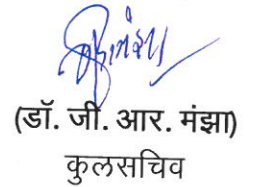 (डॉ. जी. आर. मंझा)
कुलसचिव